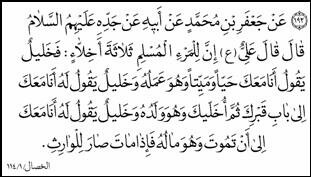 ﴿١٩٣﴾ عَنْ جَعْفَرِ بْنِ مُحَمَّدٍ عَنْ أَبِيهِ عَنْ جَدِّهِ عَلَيْهِمُ السَّلَامُ
قَالَ قَالَ عَلِيٌّ (ع) إِنَّ لِلْمَرْءِ الْمُسْلِمِ ثَلَاثَةَ أَخِلَّاءَ: فَخَلِيلٌ
يَقُولُ أَنَا مَعَكَ حَيّاً وَمَيِّتاً وَهُوَ عَمَلُهُ وَخَلِيلٌ يَقُولُ لَهُ أَنَا مَعَكَ
إِلَى بَابِ قَبْرِكَ ثُمَّ أُخَلِّيكَ وَهُوَ وَلَدُهُ وَخَلِيلٌ يَقُولُ لَهُ أَنَا مَعَكَ
إِلَى أَنْ تَمُوتَ وَهُوَ مَالُهُ فَإِذَا مَاتَ صَارَ لِلْوَارِثِ.
الخصال/١/١١٤